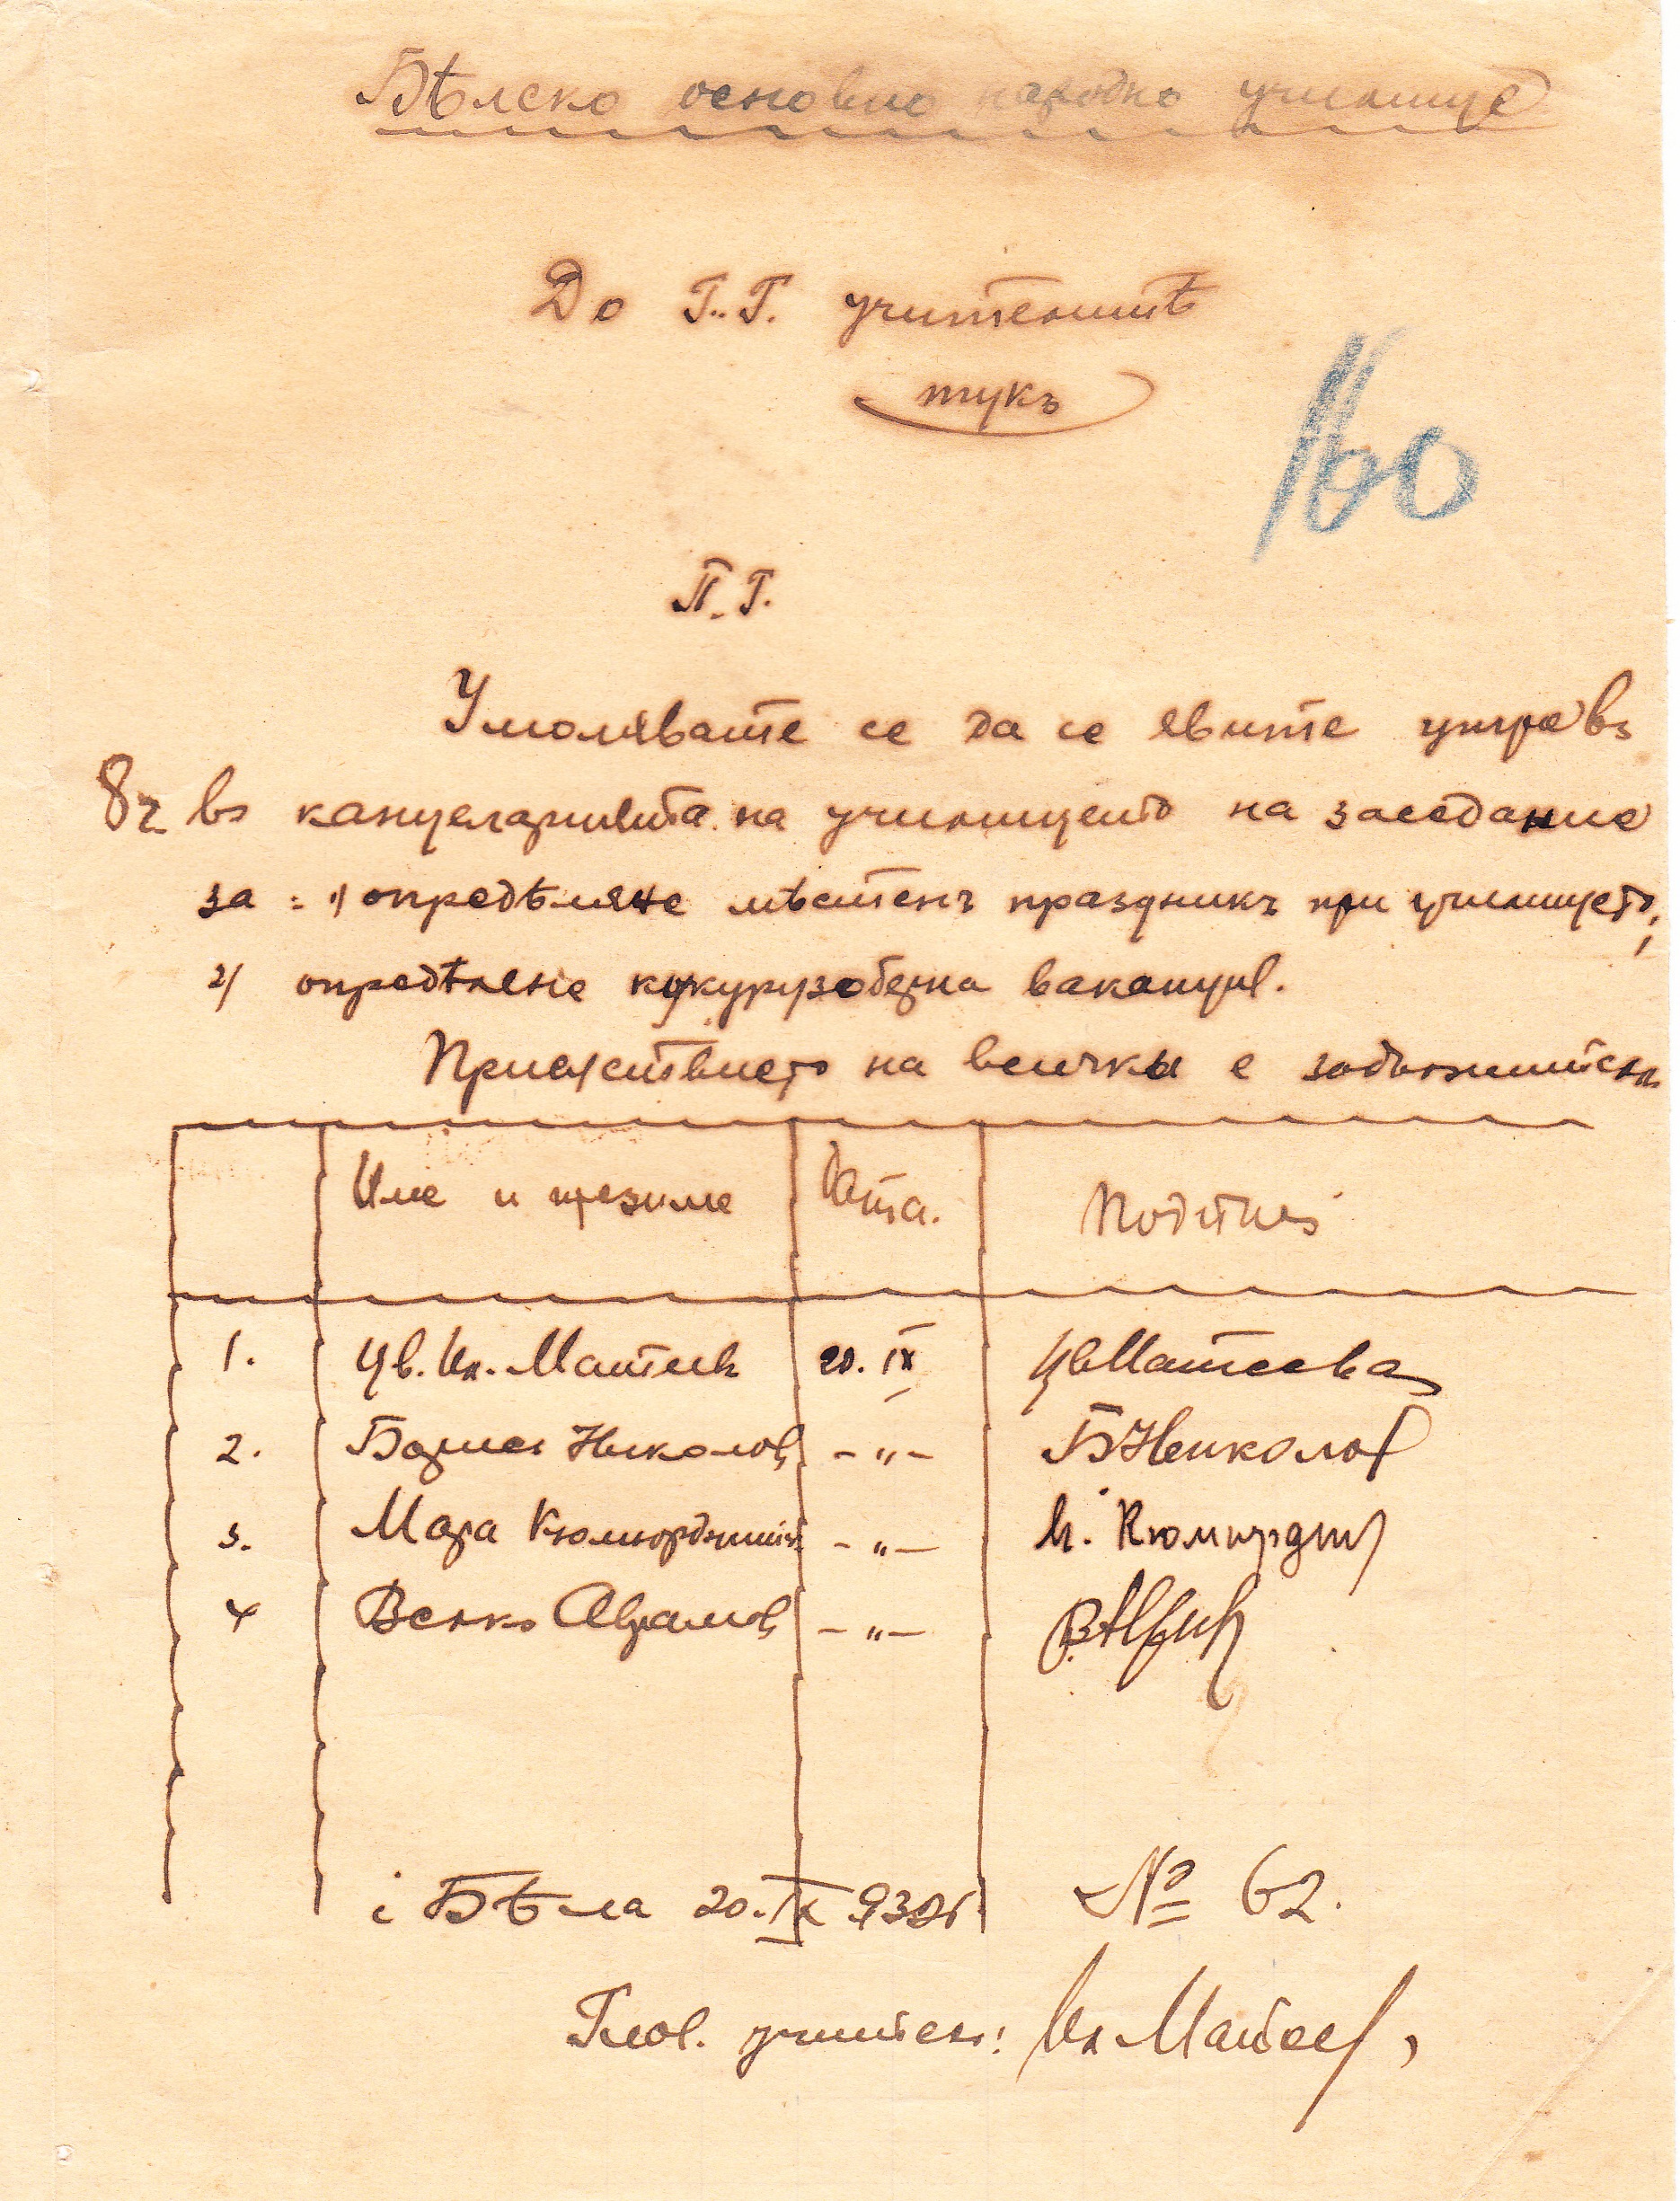 Бѣлско основно народно училище
До Г.Г. учителитѣ
тукъ
160
П.Г.
Умолявате се да се явите утре въ
8 ч. въ канцеларията на училището на заседание
за: 1/ опредѣляне мѣстенъ праздникъ при училището;
2/ опредѣлене кукурузоберна ваканция.
Присѫтствието на всички е задължително
Име и презиме Дата. Подпись
1. Цв. Ив. Матеева 20. IX ЦвМатеева
2. Борис Николов -"- БНиколов
3. Мара Кюмюрджийска -"- М. Кюмюрджи
4 Велко Аврамов -"-
с. Бѣла 20. IX 932 г. № 62.
Глав. учитель: Ив Матеев